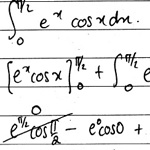 ∫₀^{π/2} eˣ cosx dx.
[eˣ cosx]₀^{π/2} + ∫₀^{π/2} e
0
e^{π/2} cos π/2 - e⁰cos0 +